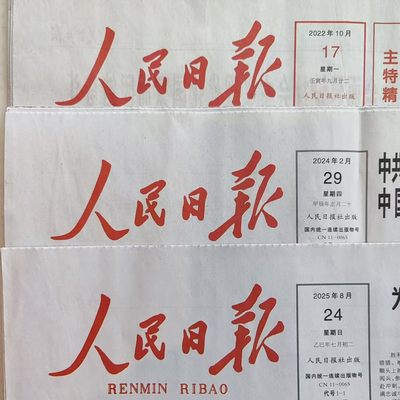 人民日报
2022年10月
17
星期一
壬寅年九月廿二
人民日报社出版
主
特
精
人民日报
2024年2月
29
星期四
甲辰年正月二十
人民日报社出版
国内统一连续出版物号
CN 11-0065
中共
中国
人民日报
RENMIN RIBAO
2025年8月
24
星期日
乙巳年七月初二
人民日报社出版
国内统一连续出版物号
CN 11-0065
代号1-1